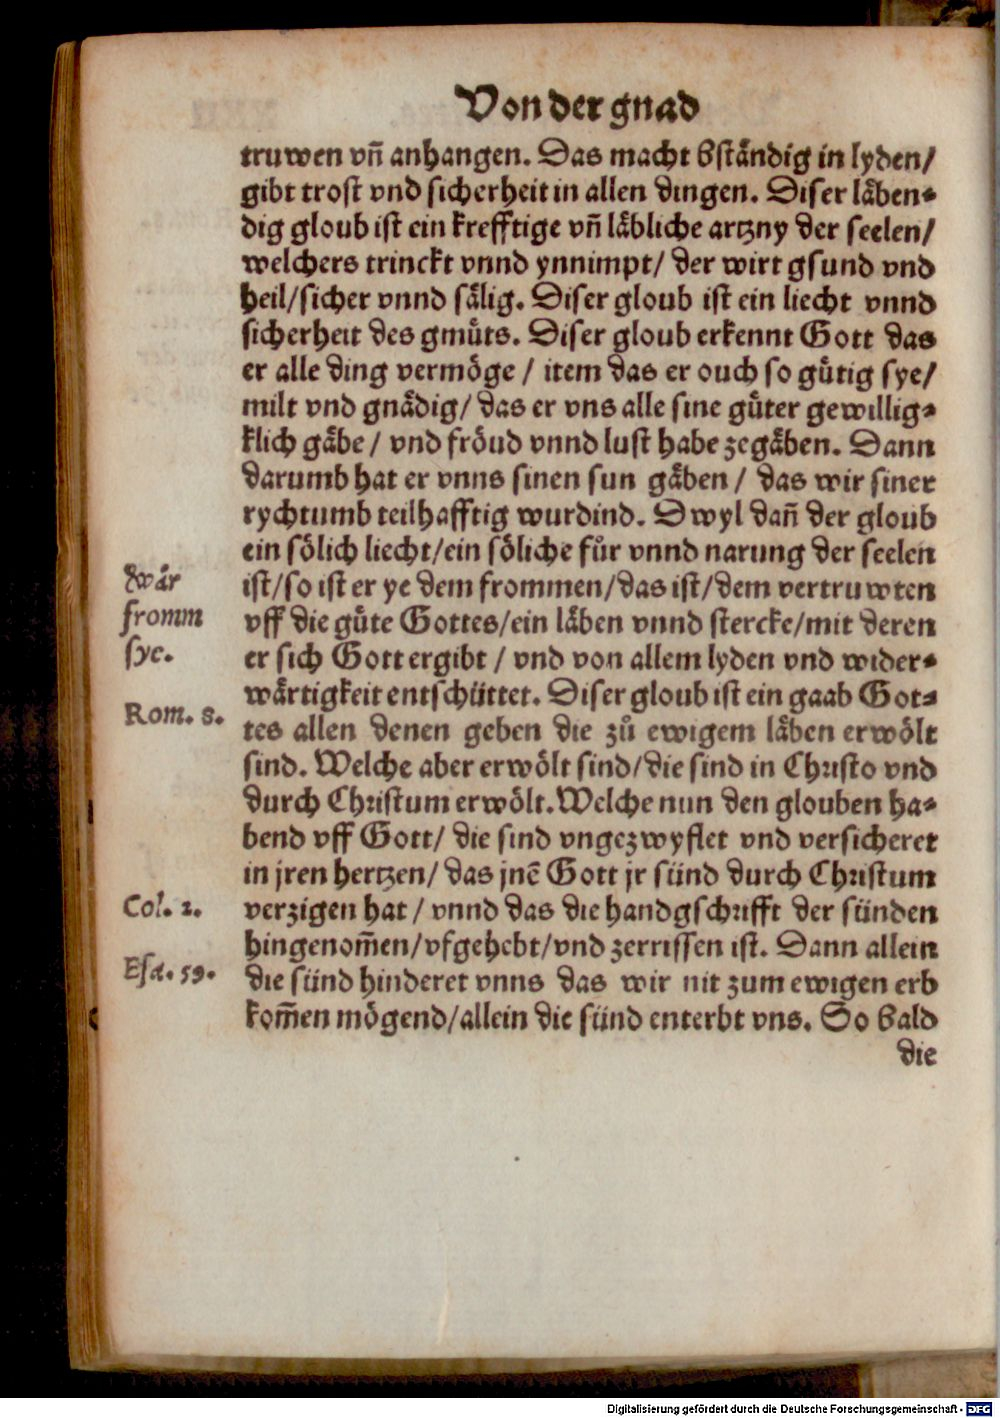 Von der gnad
truwen vñ anhangen. Das macht bständig in lyden/
gibt trost vnd sicherheit in allen dingen. Diser läben⸗
dig gloub ist ein krefftige vñ läbliche artzny der seelen/
welchers trinckt vnnd ynnimpt/ der wirt gsund vnd
heil/sicher vnnd sälig. Diser gloub ist ein liecht vnnd
sicherheit des gmüts. Diser gloub erkennt Gott das
er alle ding vermöge / item das er ouch so gütig sye/
milt vnd gnädig/ das er vns alle sine güter gewillig⸗
klich gäbe / vnd fröud vnnd lust habe zegäben. Dann
darumb hat er vnns sinen sun gäben / das wir siner
rychtumb teilhafftig wurdind. Dwyl dañ der gloub
ein sölich liecht/ein söliche fůr vnnd narung der seelen
Wär
ist/so ist er ye dem frommen/das ist/dem vertruwten
fromm
vff die güte Gottes/ein läben vnnd stercke/mit deren
sye.
er sich Gott ergibt / vnd von allem lyden vnd wider⸗
wärtigkeit entschüttet. Diser gloub ist ein gaab Got⸗
Rom. 8.
tes allen denen geben die zů ewigem läben erwölt
sind. Welche aber erwölt sind/die sind in Christo vnd
durch Christum erwölt. Welche nun den glouben ha⸗
bend vff Gott/ die sind vngezwyflet vnd versicheret
in jren hertzen/ das jnē Gott jr sünd durch Christum
Col. 2.
verzigen hat / vnnd das die handgschrifft der sünden
hingenom̃en/vfgehebt/vnd zerrissen ist. Dann allein
Esa. 59.
die sünd hinderet vnns das wir nit zum ewigen erb
kom̃en mögend/allein die sünd enterbt vns. So bald
die
Digitalisierung gefördert durch die Deutsche Forschungsgemeinschaft - DFG